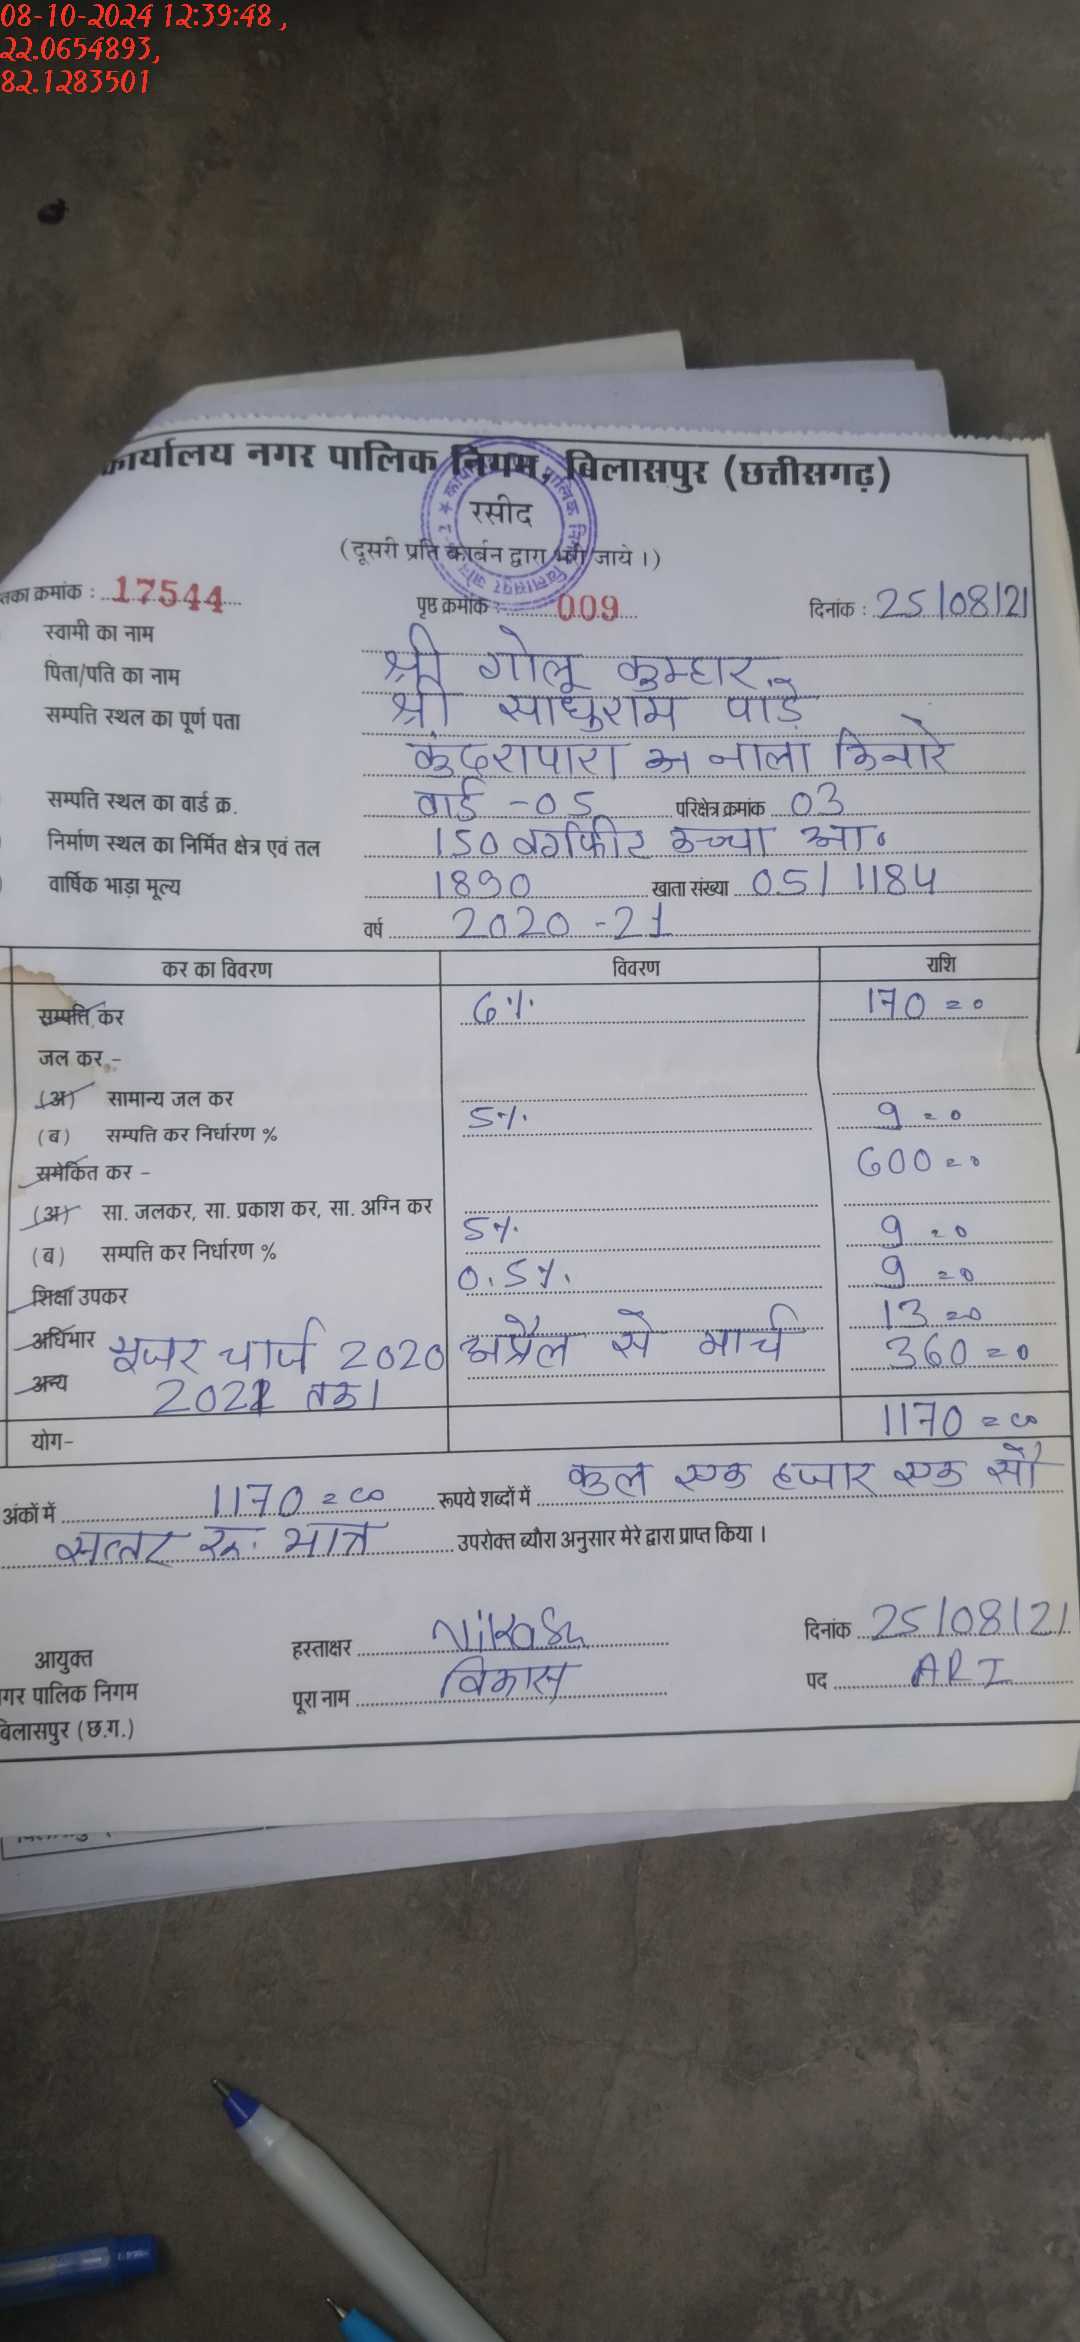 08-10-2024 12:39:48 ,
22.0654893,
82.1283501
कार्यालय नगर पालिक निगम, बिलासपुर (छत्तीसगढ़)
रसीद
(दूसरी प्रति कार्बन द्वारा भरी जाये ।)
तका क्रमांक : 17544 पृष्ठ क्रमांक : 009 दिनांक : 25/08/21
स्वामी का नाम श्री गोलू कुम्हार
पिता/पति का नाम श्री साधुराम पांड़े
सम्पत्ति स्थल का पूर्ण पता कुंदरापारा अ नाला किनारे
सम्पत्ति स्थल का वार्ड क्र. वार्ड -05 परिक्षेत्र क्रमांक 03
निर्माण स्थल का निर्मित क्षेत्र एवं तल 150 वर्गफीट कच्चा आ०
वार्षिक भाड़ा मूल्य 1890 खाता संख्या 05/1184
वर्ष 2020-21
कर का विवरण विवरण राशि
सम्पत्ति कर 6% 170=0
जल कर,-
(अ) सामान्य जल कर
(ब) सम्पत्ति कर निर्धारण % 5% 9=0
समेकित कर - 600=0
(अ) सा. जलकर, सा. प्रकाश कर, सा. अग्नि कर
(ब) सम्पत्ति कर निर्धारण % 5% 9=0
शिक्षा उपकर 0.5% 9=0
अधिभार 13=0
यूजर चार्ज 2020 अप्रैल से मार्च 360=0
अन्य 2021 तक।
योग- 1170=00
अंकों में 1170=00 रूपये शब्दों में कुल एक हजार एक सौ
सत्तर रू. मात्र उपरोक्त ब्यौरा अनुसार मेरे द्वारा प्राप्त किया ।
आयुक्त हस्ताक्षर Vikash दिनांक 25/08/21
गर पालिक निगम पूरा नाम विकास पद ARI
बिलासपुर (छ.ग.)